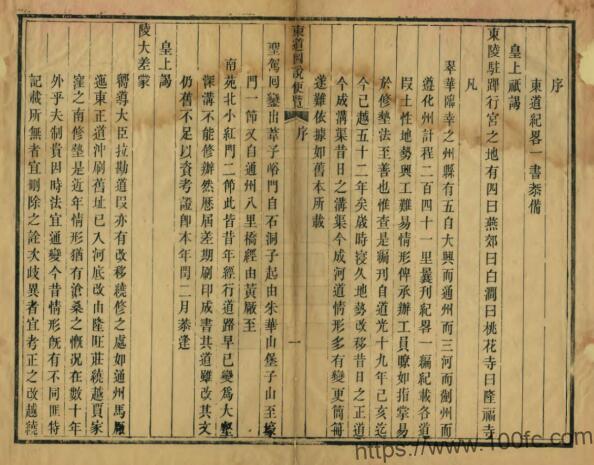 序
東道紀畧一書恭備
皇上祇謁
東陵駐蹕行宮之地有四曰燕郊曰白澗曰桃花寺曰隆福寺
凡
翠華臨幸之州縣有五自大興而通州而三河而薊州而
遵化州計程二百四十一里曩刋紀畧一編紀載各道
叚土性地勢興工難易情形俾承辦工員瞭如指掌易
於修墊法至善也惟查是編刋自道光十九年己亥迄
今已越五十二年矣歲時寖久地勢改移昔日之正道
今成溝渠昔日之溝渠今成河道情形多有變更簡冊
遂難依據如舊本所載
東道圖說便覽
序
一
聖駕囘鑾出葦子峪門自石洞子起由朱華山堡子山至壕
門一節又自通州八里橋經由黃厰至
南苑北小紅門二節此皆昔年經行道路早已變爲大壑
深溝不能修辦然歷屆差期刷印成書其道雖改其文
仍舊不足以資考證卽本年閏二月恭逢
皇上謁
陵大差蒙
嚮導大臣拉勘道叚亦有改移繞修之處如通州馬厰
迤東正道沖刷舊址已入河底改由隆旺莊繞越賈家
窪之南修墊是近年情形猶有滄桑之慨况在數十年
外乎夫制貴因時法宜通變今昔情形旣有不同則特
記載所無者宜刪除之詮次歧異者宜考正之改越繞
https://www.100fc.com